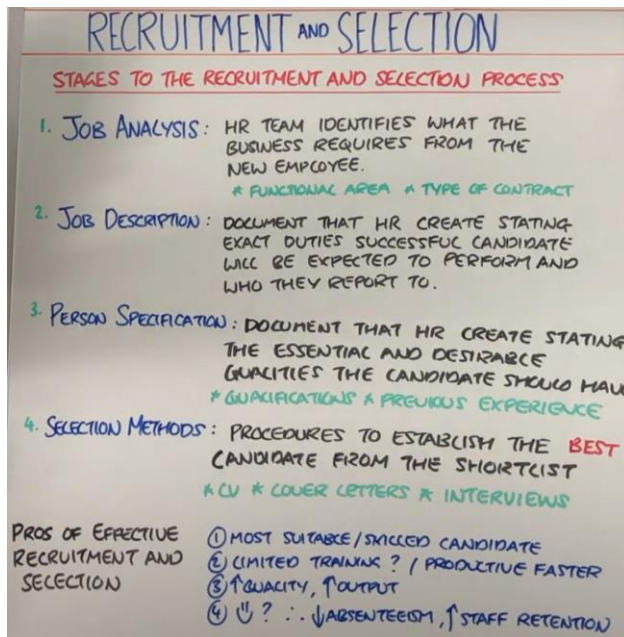 RECRUITMENT AND SELECTION
STAGES TO THE RECRUITMENT AND SELECTION PROCESS
1. JOB ANALYSIS: HR TEAM IDENTIFIES WHAT THE
BUSINESS REQUIRES FROM THE
NEW EMPLOYEE.
* FUNCTIONAL AREA * TYPE OF CONTRACT
2. JOB DESCRIPTION: DOCUMENT THAT HR CREATE STATING
EXACT DUTIES SUCCESSFUL CANDIDATE
WILL BE EXPECTED TO PERFORM AND
WHO THEY REPORT TO.
3. PERSON SPECIFICATION: DOCUMENT THAT HR CREATE STATING
THE ESSENTIAL AND DESIRABLE
QUALITIES THE CANDIDATE SHOULD HAVE
* QUALIFICATIONS * PREVIOUS EXPERIENCE
4. SELECTION METHODS: PROCEDURES TO ESTABLISH THE BEST
CANDIDATE FROM THE SHORTLIST
* CV * COVER LETTERS * INTERVIEWS
PROS OF EFFECTIVE
RECRUITMENT AND
SELECTION
① MOST SUITABLE/SKILLED CANDIDATE
② LIMITED TRAINING? / PRODUCTIVE FASTER
③ ↑QUALITY, ↑OUTPUT
④ ☺? ∴ ↓ABSENTEEISM, ↑STAFF RETENTION